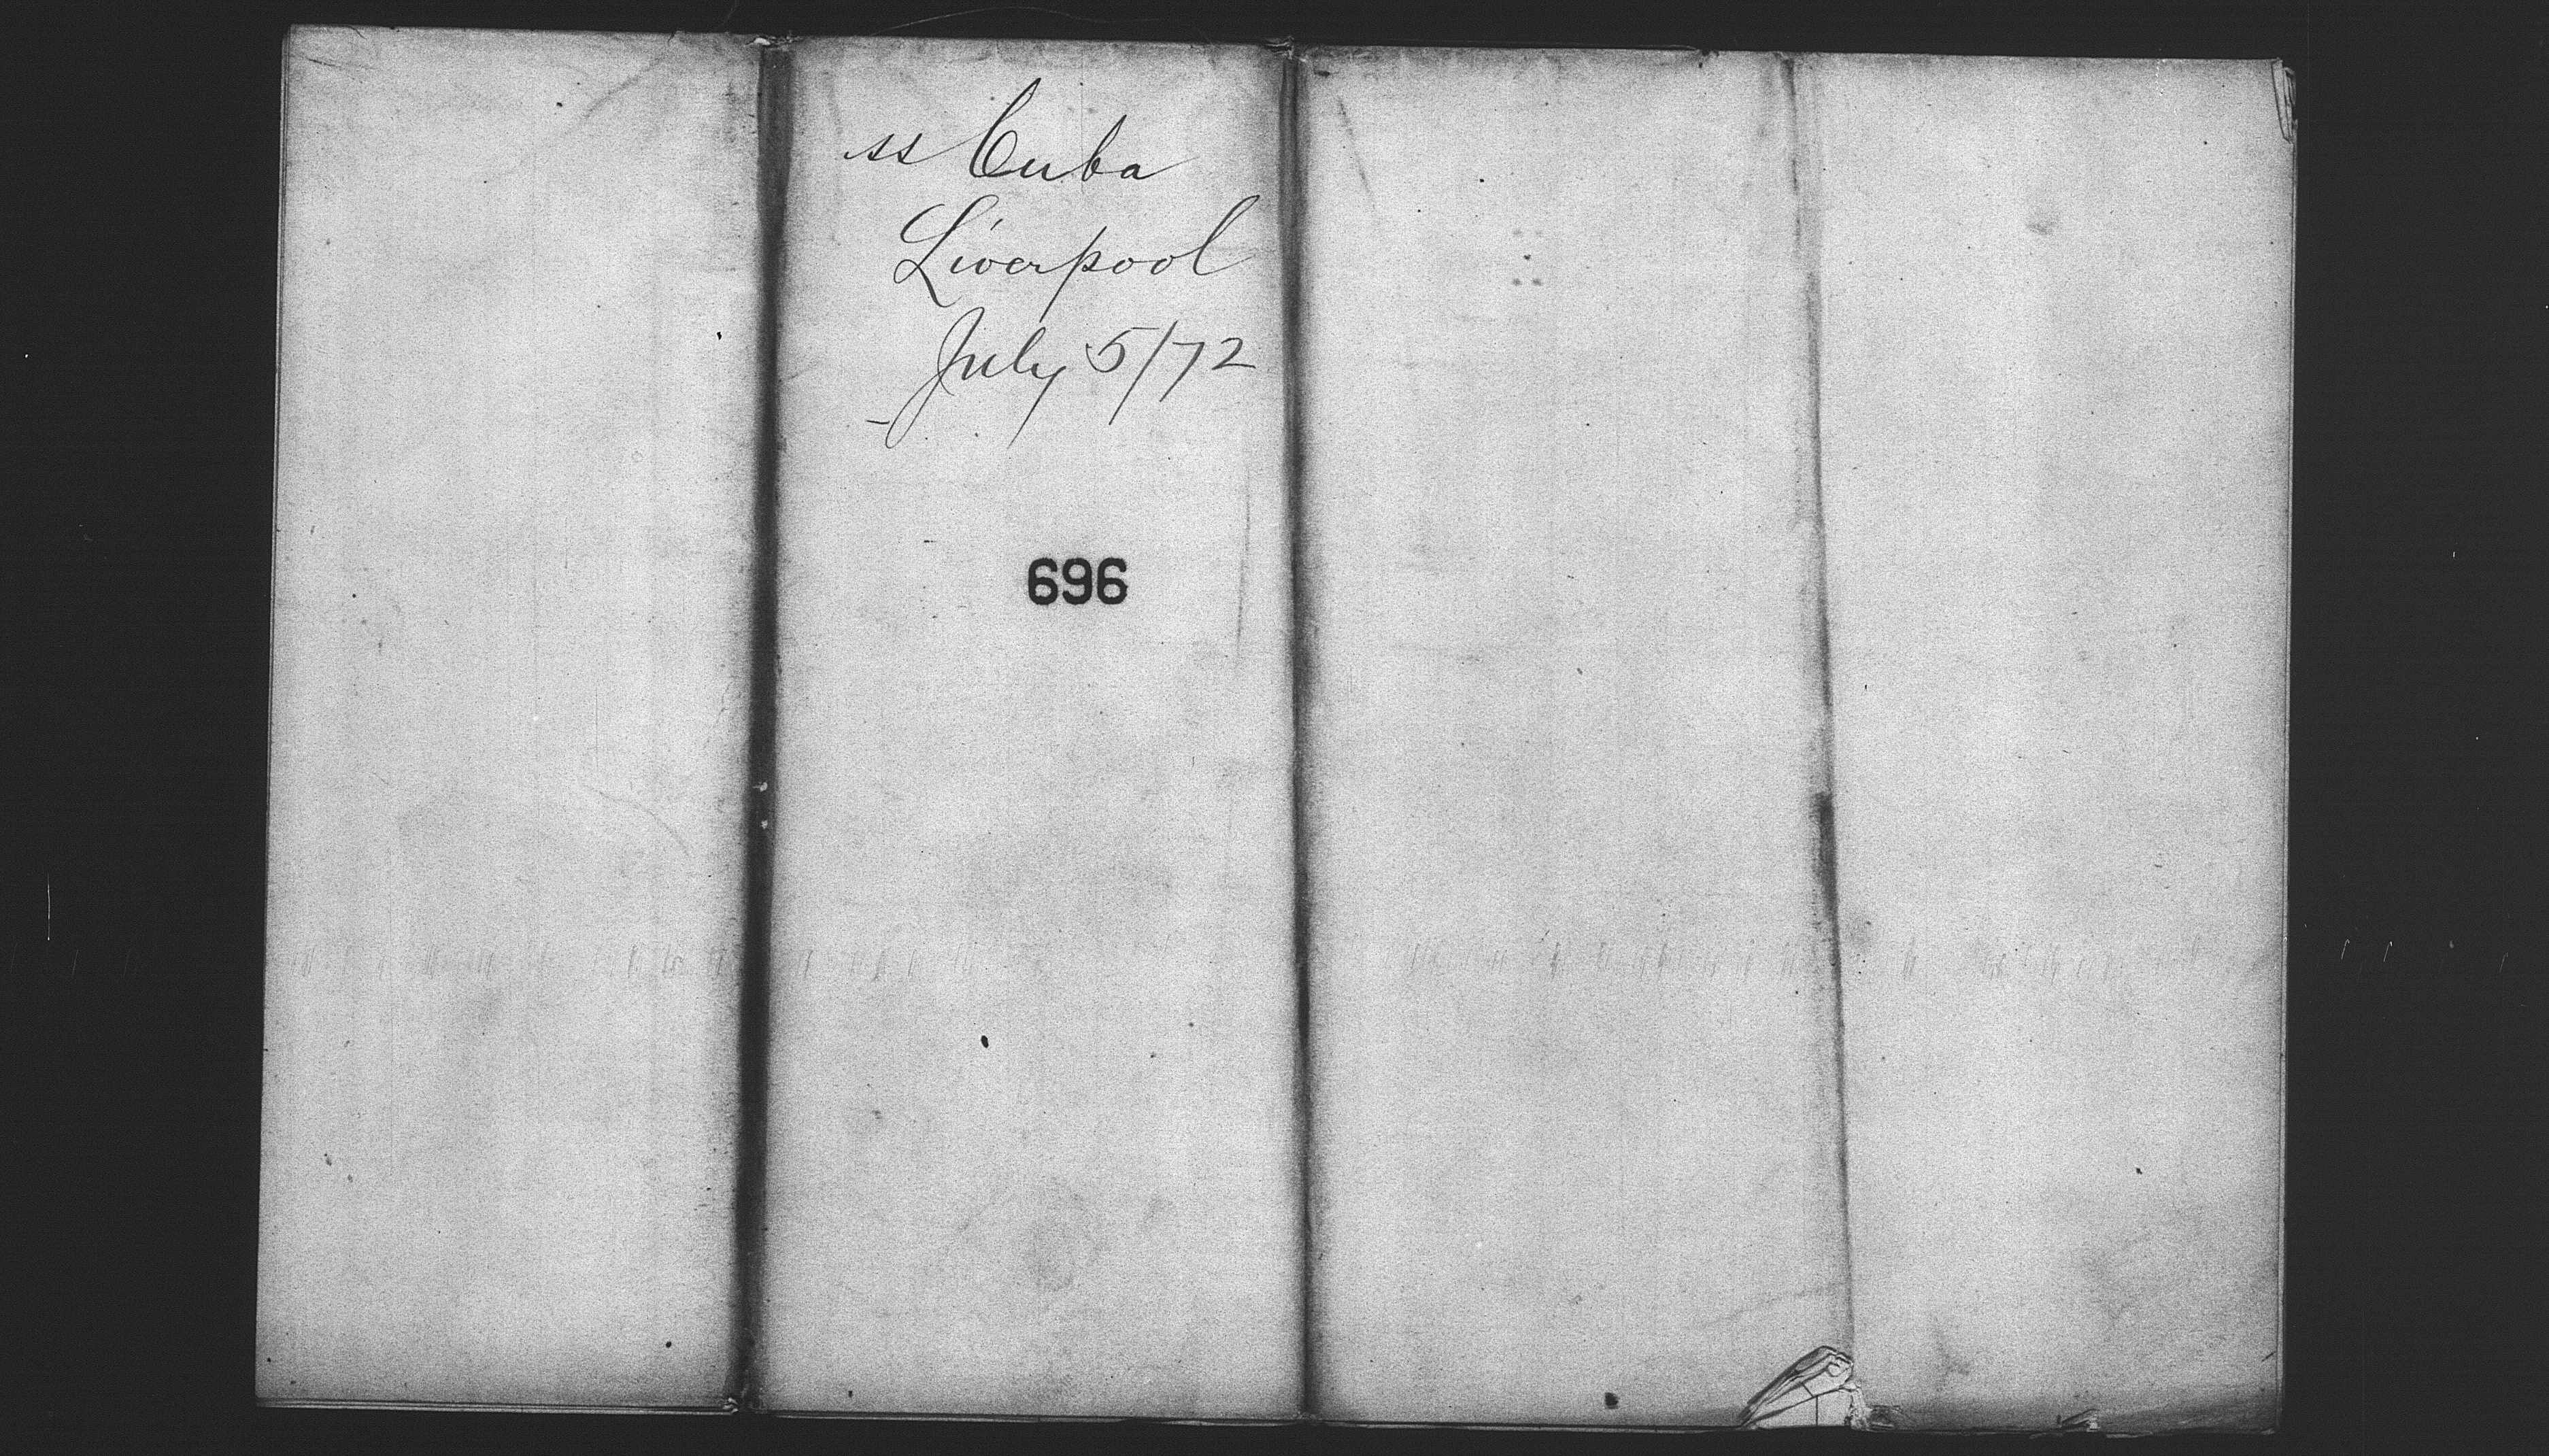 ss Cuba
Liverpool
July 5/72
696